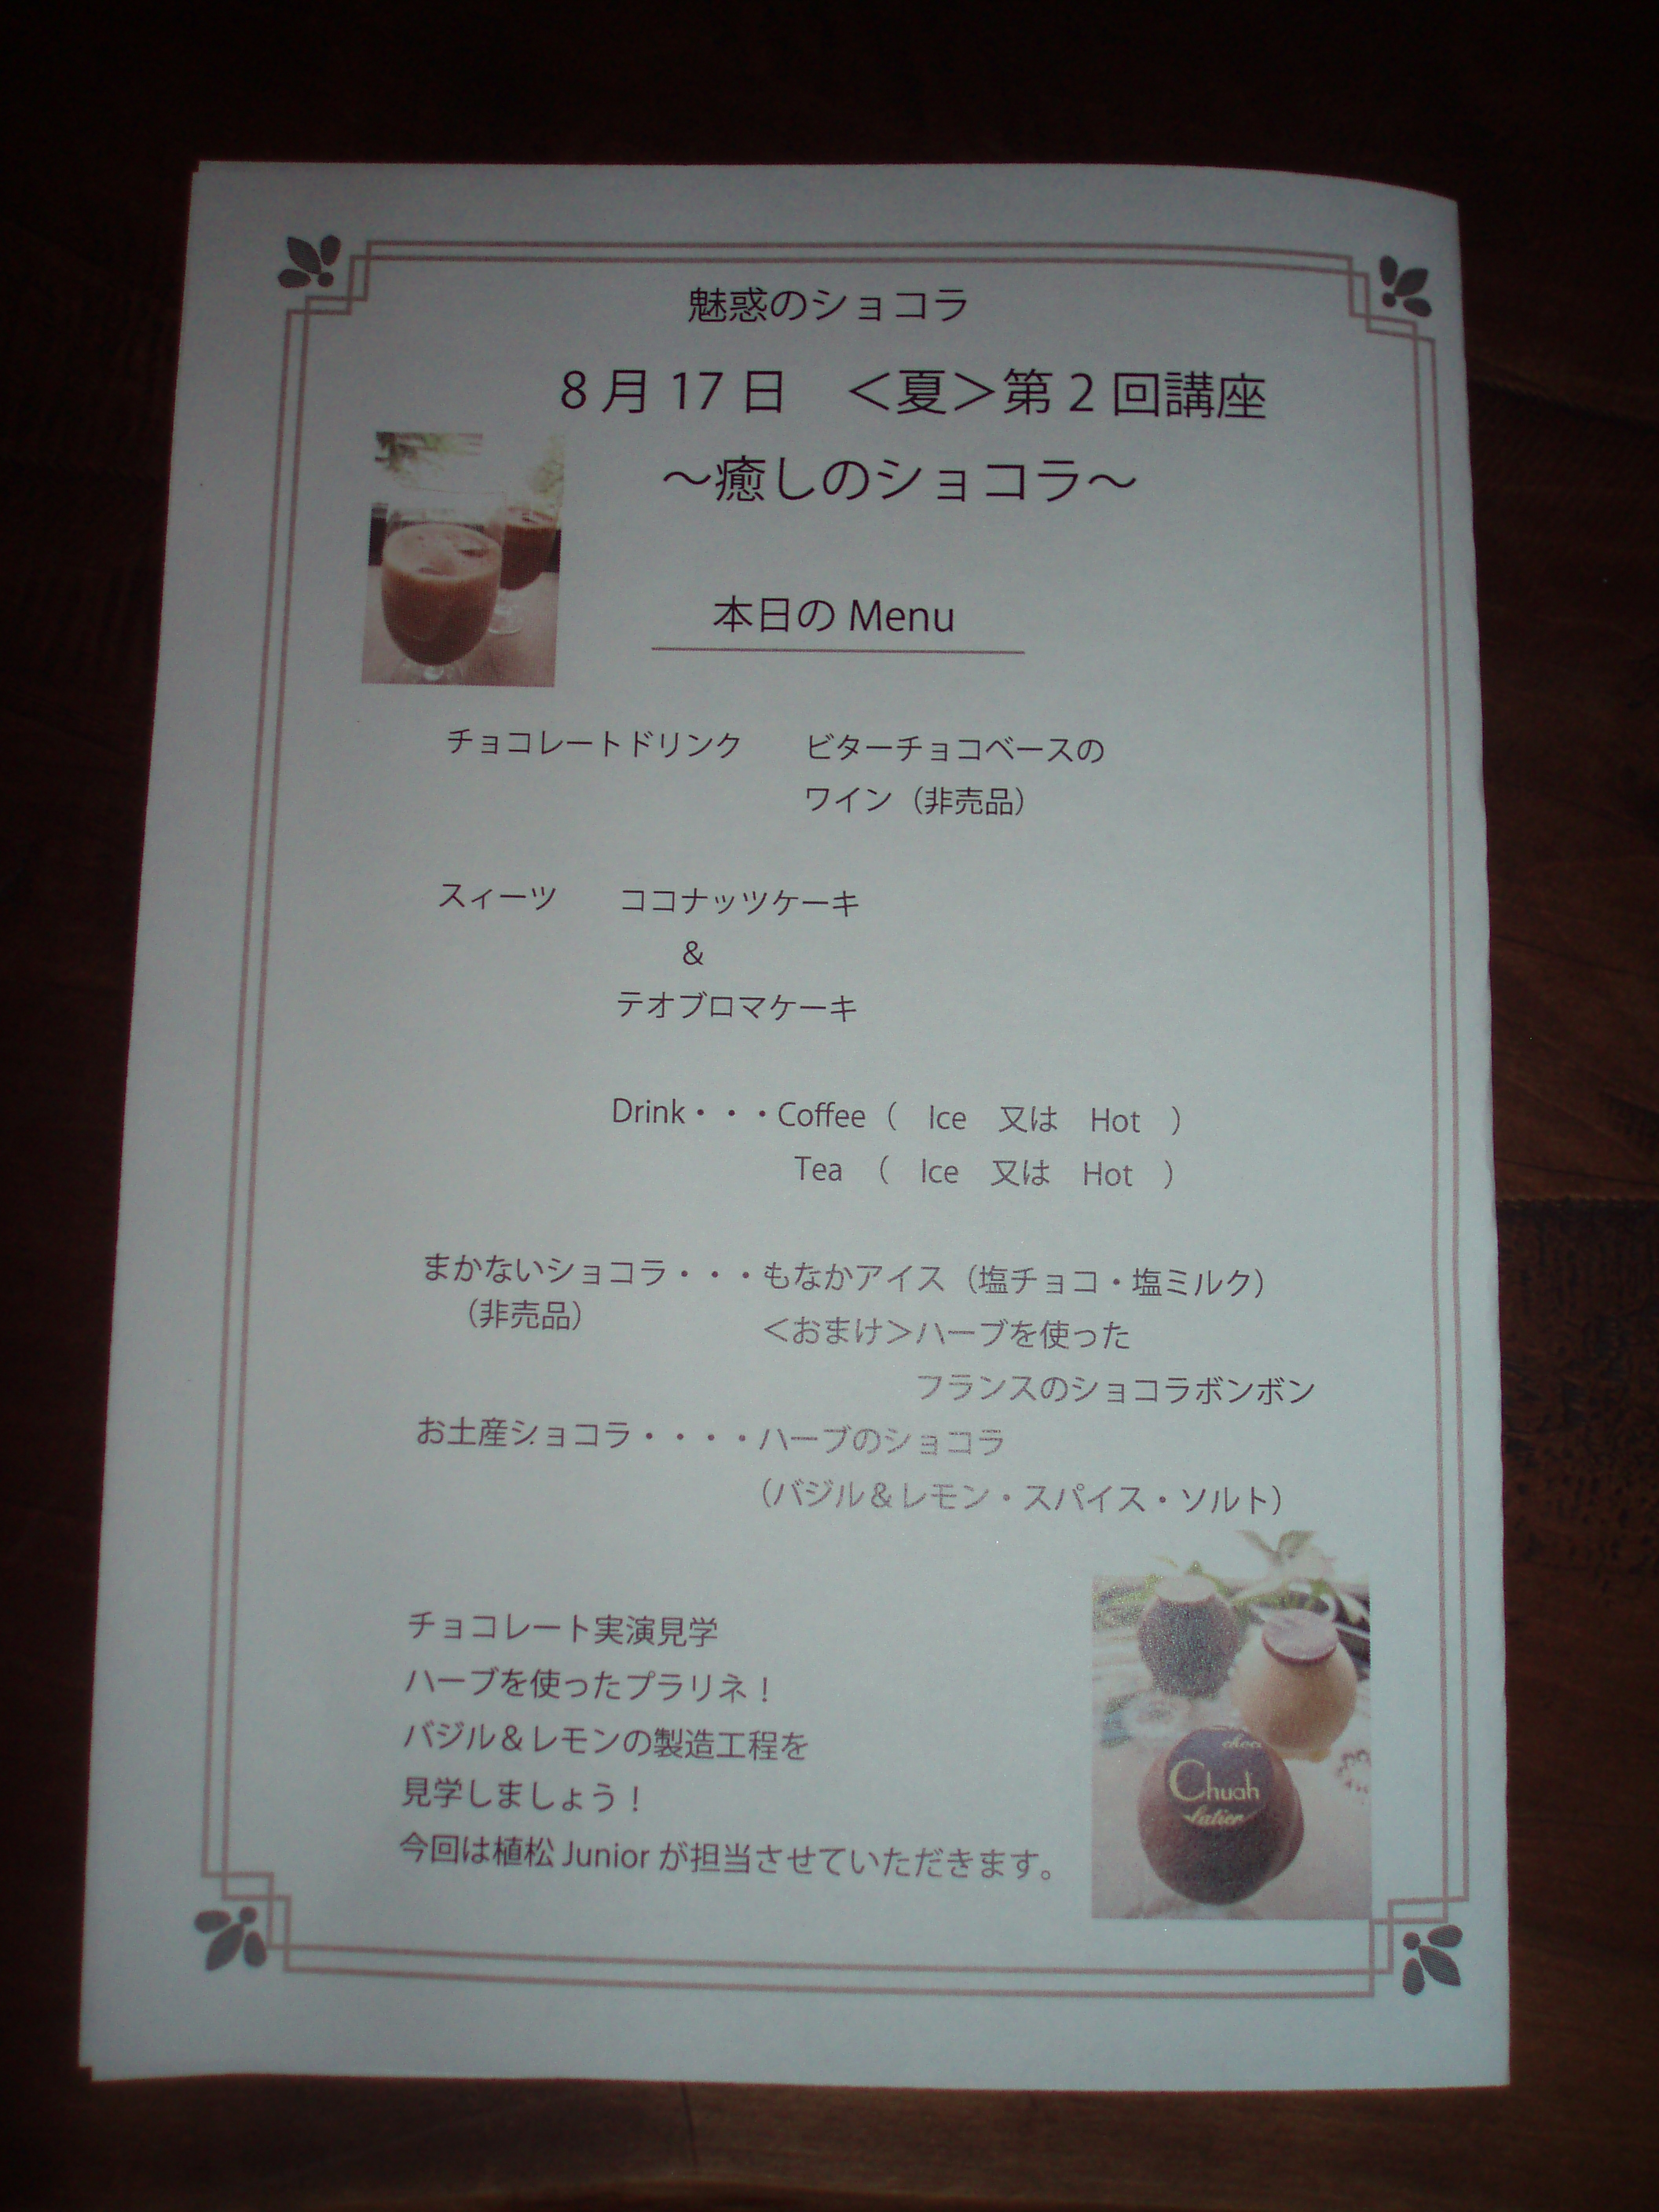 魅惑のショコラ
8月17日　＜夏＞第2回講座
～癒しのショコラ～
本日の Menu
チョコレートドリンク　ビターチョコベースの
ワイン（非売品）
スィーツ　ココナッツケーキ
&
テオブロマケーキ
Drink・・・Coffee（　Ice　又は　Hot　）
Tea　（　Ice　又は　Hot　）
まかないショコラ・・・もなかアイス（塩チョコ・塩ミルク）
（非売品）　＜おまけ＞ハーブを使った
フランスのショコラボンボン
お土産ショコラ・・・・ハーブのショコラ
（バジル＆レモン・スパイス・ソルト）
チョコレート実演見学
ハーブを使ったプラリネ！
バジル＆レモンの製造工程を
見学しましょう！
今回は植松 Junior が担当させていただきます。
choco
Chuah
latier